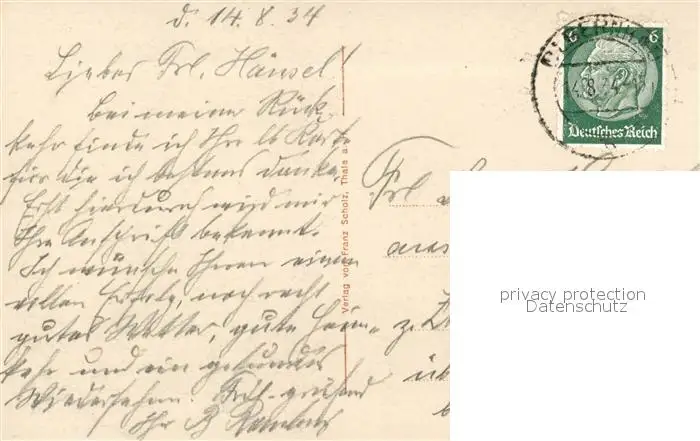 d. 14. 8. 34
Liebes Frl. Hänsel!
Bei meiner Rück-
kehr finde ich Ihre lb Karte
für die ich bestens danke.
Erst hierdurch wird mir
Ihre Anschrift bekannt.
Ich wünsche Ihnen einen
vollen Erfolg, noch recht
gutes Wetter, gute Heim-
kehr und ein gesundes
Wiedersehen. Frdl. grüßend
Ihr B
Verlag von Franz Scholz, Thale a.
6 6
14.8.34
Deutsches Reich
Frl
z. Z
privacy protection
Datenschutz